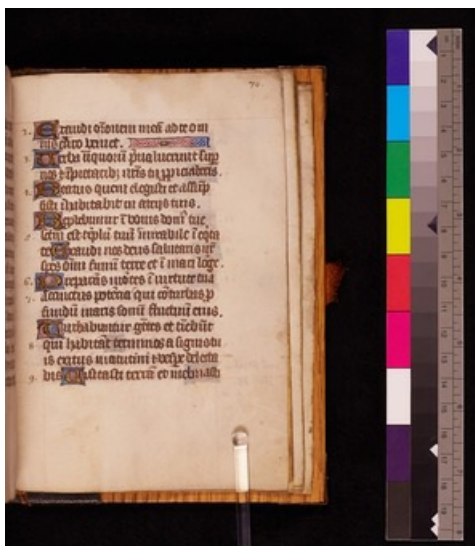 2. Exaudi or̃onem meã ad te om
nis caro veniet.
3. Verba iniquorũ p̃ualuerunt sup̃
nos ⁊ ĩpietatibꝫ nr̃is tu ꝓpiciaberis.
Beatus quem elegisti et assũp
sisti ĩhabitabit in atriis tuis.
Replebimur ĩ bonis domꝰ tue
scm̃ est tẽplũ tuũ mirabile ĩ eq̃ta
te Exaudi nos deus salutaris nr̃
spes oĩm finiũ terre et ĩ mari lõge.
6. Preparãs mõtes ĩ virtute tua
7. accinctus potẽcia qui cõturbas ꝓ
fundũ maris sonũ fluctuũ eius.
Turbabuntur gẽtes et timebũt
8 qui habitãt terminos a signis tu
is exitus matutini ⁊ vespe delecta
9. bis Visitasti terrã et inebriasti